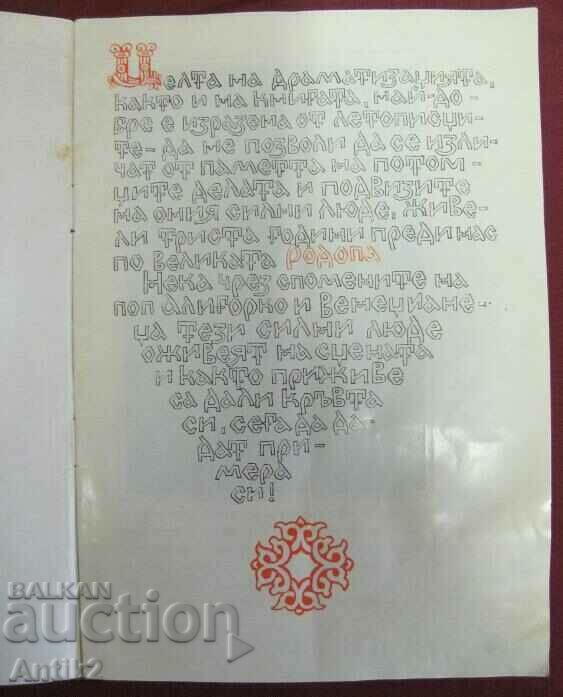 Целта на драматизацията,
както и на книгата, най-до-
бре е изразена от летописци-
те- да не позволи да се изли-
чат от паметта на потом-
ците делата и подвизите
на ония силни люде, живе-
ли триста години преди нас
по великата Родопа
Нека чрез спомените на
поп Алигорко и венециане-
ца тези силни люде
оживеят на сцената
и както приживе
са дали кръвта
си, сега да да-
дат при-
мера
си!
BALKAN
auction
Antik2